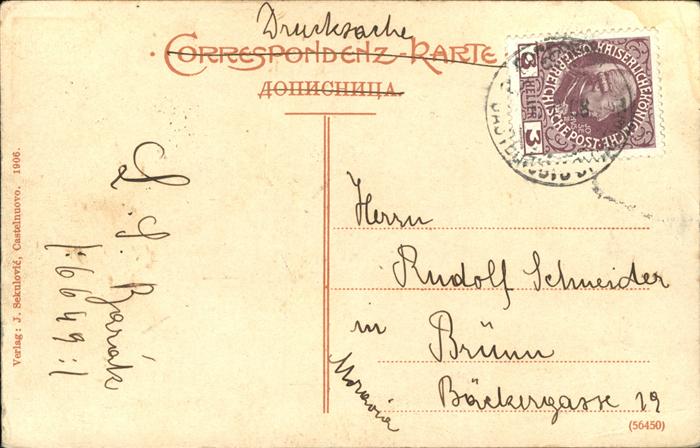 Drucksache
CORRESPONDENZ-KARTE
ДОПИСНИЦА.
3 HELLER 3
KAISERLICHE KÖNIGLICHE
ÖSTERREICHISCHE POST
Verlag: J. Sekulović, Castelnuovo. 1906.
Barák
1:6649:1
Herrn
Rudolf Schneider
in
Brünn
Moravia
Bäckergasse 19
(56450)